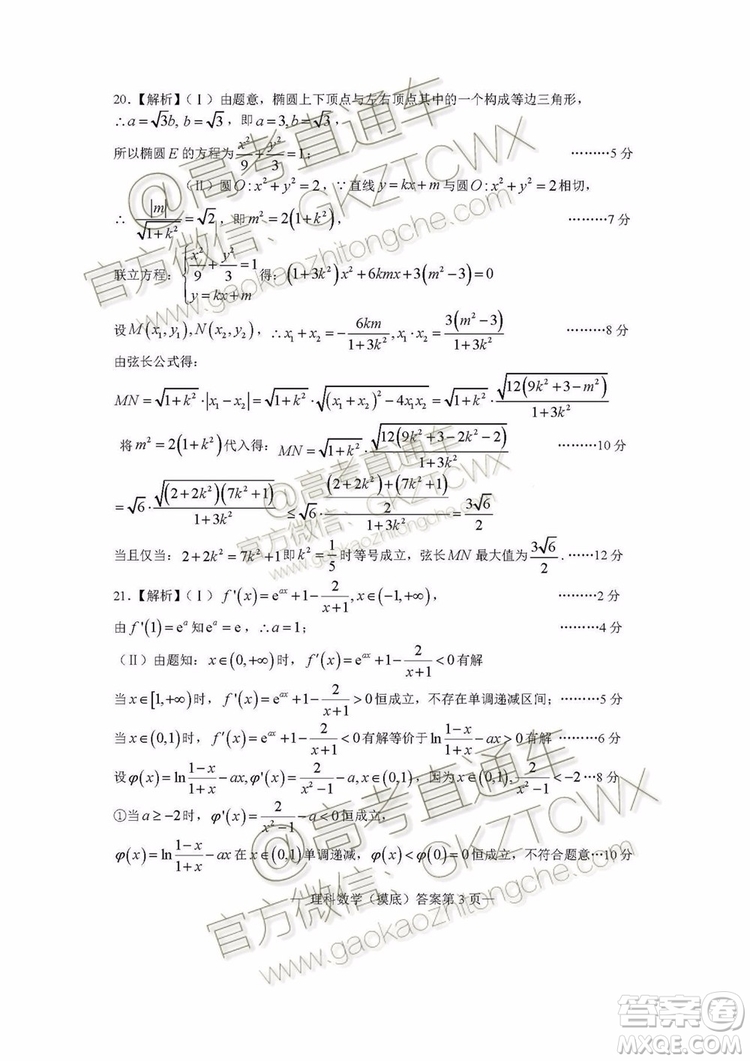 20.【解析】(Ⅰ) 由题意，椭圆上下顶点与左右顶点其中的一个构成等边三角形，
∴a=√3b, b=√3，即a=3,b=√3，
所以椭圆 E 的方程为 x²/9 + y²/3 =1； ………5 分
(II) 圆 O:x²+y²=2，∵直线 y=kx+m 与圆 O:x²+y²=2 相切，
∴ |m|/√(1+k²) =√2，即 m²=2(1+k²)， ………7 分
联立方程：{x²/9 + y²/3 =1, y=kx+m 得：(1+3k²)x²+6kmx+3(m²−3)=0
设 M(x₁,y₁),N(x₂,y₂)，∴x₁+x₂=−6km/(1+3k²), x₁·x₂=3(m²−3)/(1+3k²) ………8 分
由弦长公式得：
MN=√(1+k²)·|x₁−x₂|=√(1+k²)·√((x₁+x₂)²−4x₁x₂)=√(1+k²)·√(12(9k²+3−m²))/(1+3k²)
将 m²=2(1+k²)代入得：MN=√(1+k²)·√(12(9k²+3−2k²−2))/(1+3k²) ………10 分
=√6·√((2+2k²)(7k²+1))/(1+3k²) ≤√6·(((2+2k²)+(7k²+1))/2)/(1+3k²)=3√6/2
当且仅当：2+2k²=7k²+1即 k²=1/5 时等号成立，弦长 MN 最大值为 3√6/2 . ……12 分
21.【解析】(Ⅰ) f'(x)=e^(ax)+1−2/(x+1), x∈(−1,+∞)， ………2 分
由 f'(1)=e^a 知e^a=e，∴a=1； ………4 分
(Ⅱ) 由题知：x∈(0,+∞)时，f'(x)=e^(ax)+1−2/(x+1)<0有解
当 x∈[1,+∞)时，f'(x)=e^(ax)+1−2/(x+1)>0恒成立，不存在单调递减区间；………5 分
当 x∈(0,1)时，f'(x)=e^(ax)+1−2/(x+1)<0有解等价于ln(1−x)/(1+x)−ax>0有解 ………6 分
设φ(x)=ln(1−x)/(1+x)−ax,φ'(x)=2/(x²−1)−a,x∈(0,1)，因为 x∈(0,1),2/(x²−1)<−2…8 分
①当a≥−2时，φ'(x)=2/(x²−1)−a<0恒成立，
φ(x)=ln(1−x)/(1+x)−ax 在 x∈(0,1)单调递减，φ(x)<φ(0)=0恒成立，不符合题意…10 分
— 理科数学（摸底）答案第 3 页—
@高考直通车
官方微信：GKZTCWX
www.gaokaozhitongche.com
@高考直通车
官方微信：GKZTCWX
www.gaokaozhitongche.com
@高考直通车
官方微信：GKZTCWX
www.gaokaozhitongche.com
答案圈
MXQE.COM